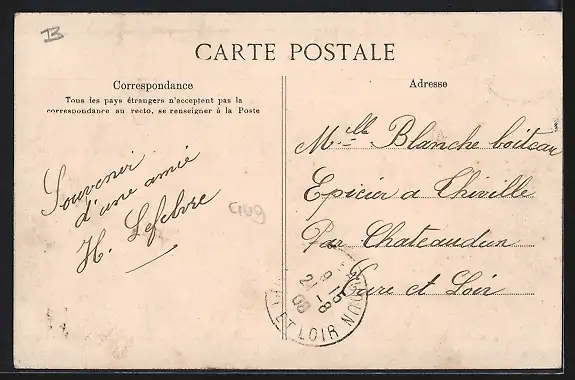 B
CARTE POSTALE
Correspondance
Tous les pays étrangers n'acceptent pas la
correspondance au recto, se renseigner à la Poste
Souvenir
d'une amie
H. Lefebvre
Adresse
Mlle Blanche boiteau
Epicier a Thiville
Par Chateaudun
Eure et Loir
9 15
21 -8
08
ET LOIR